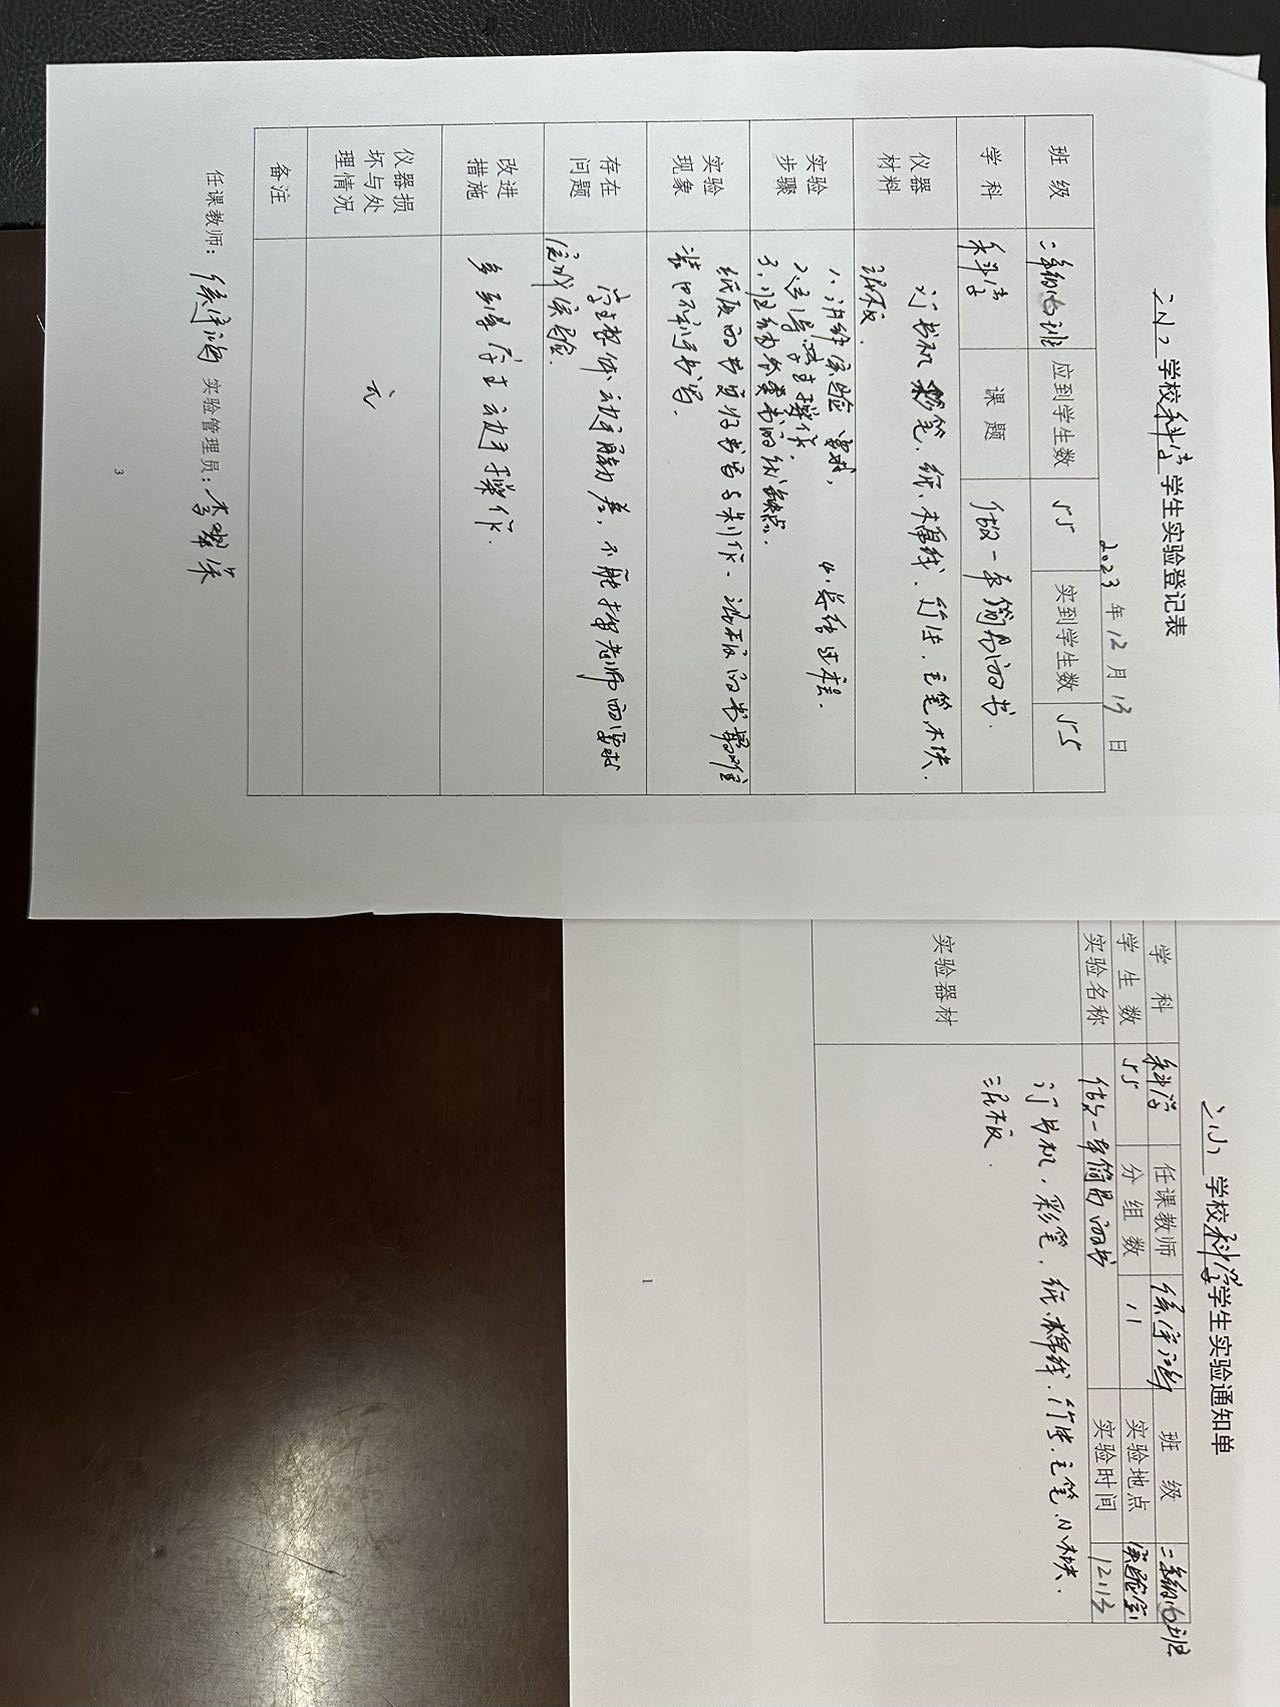 二小 学校科学学生实验登记表
2023 年 12 月 13 日
班 级 二年级 班 应到学生数 55 实到学生数 55
学 科 科学 课 题 做一本简易的书.
仪器
材料
订书机 彩笔、纸、棉线、竹片、毛笔、木块.
泥板.
实验
步骤
1、讲解实验要求,
2、引导学生操作.
3、归纳各类书的优缺点.
4、总结
实验
现象
纸质的书更好书写与制作、泥板的书最难
装 不利于书写.
存在
问题
学生整体动手 差,不能按老师的要求
完成实验.
改进
措施
多引导学生动手操作.
仪器损
坏与处
理情况
无
备注
任课教师: 实验管理员:
3
二小 学校科学学生实验通知单
学 科 科学 任课教师 班 级 二年级 班
学 生 数 55 分 组 数 11 实验地点 实验室
实验名称 做一本简易的书 实验时间 12.13
实验器材
订书机、彩笔、纸、棉线、竹片、毛笔、小木块.
泥板.
1